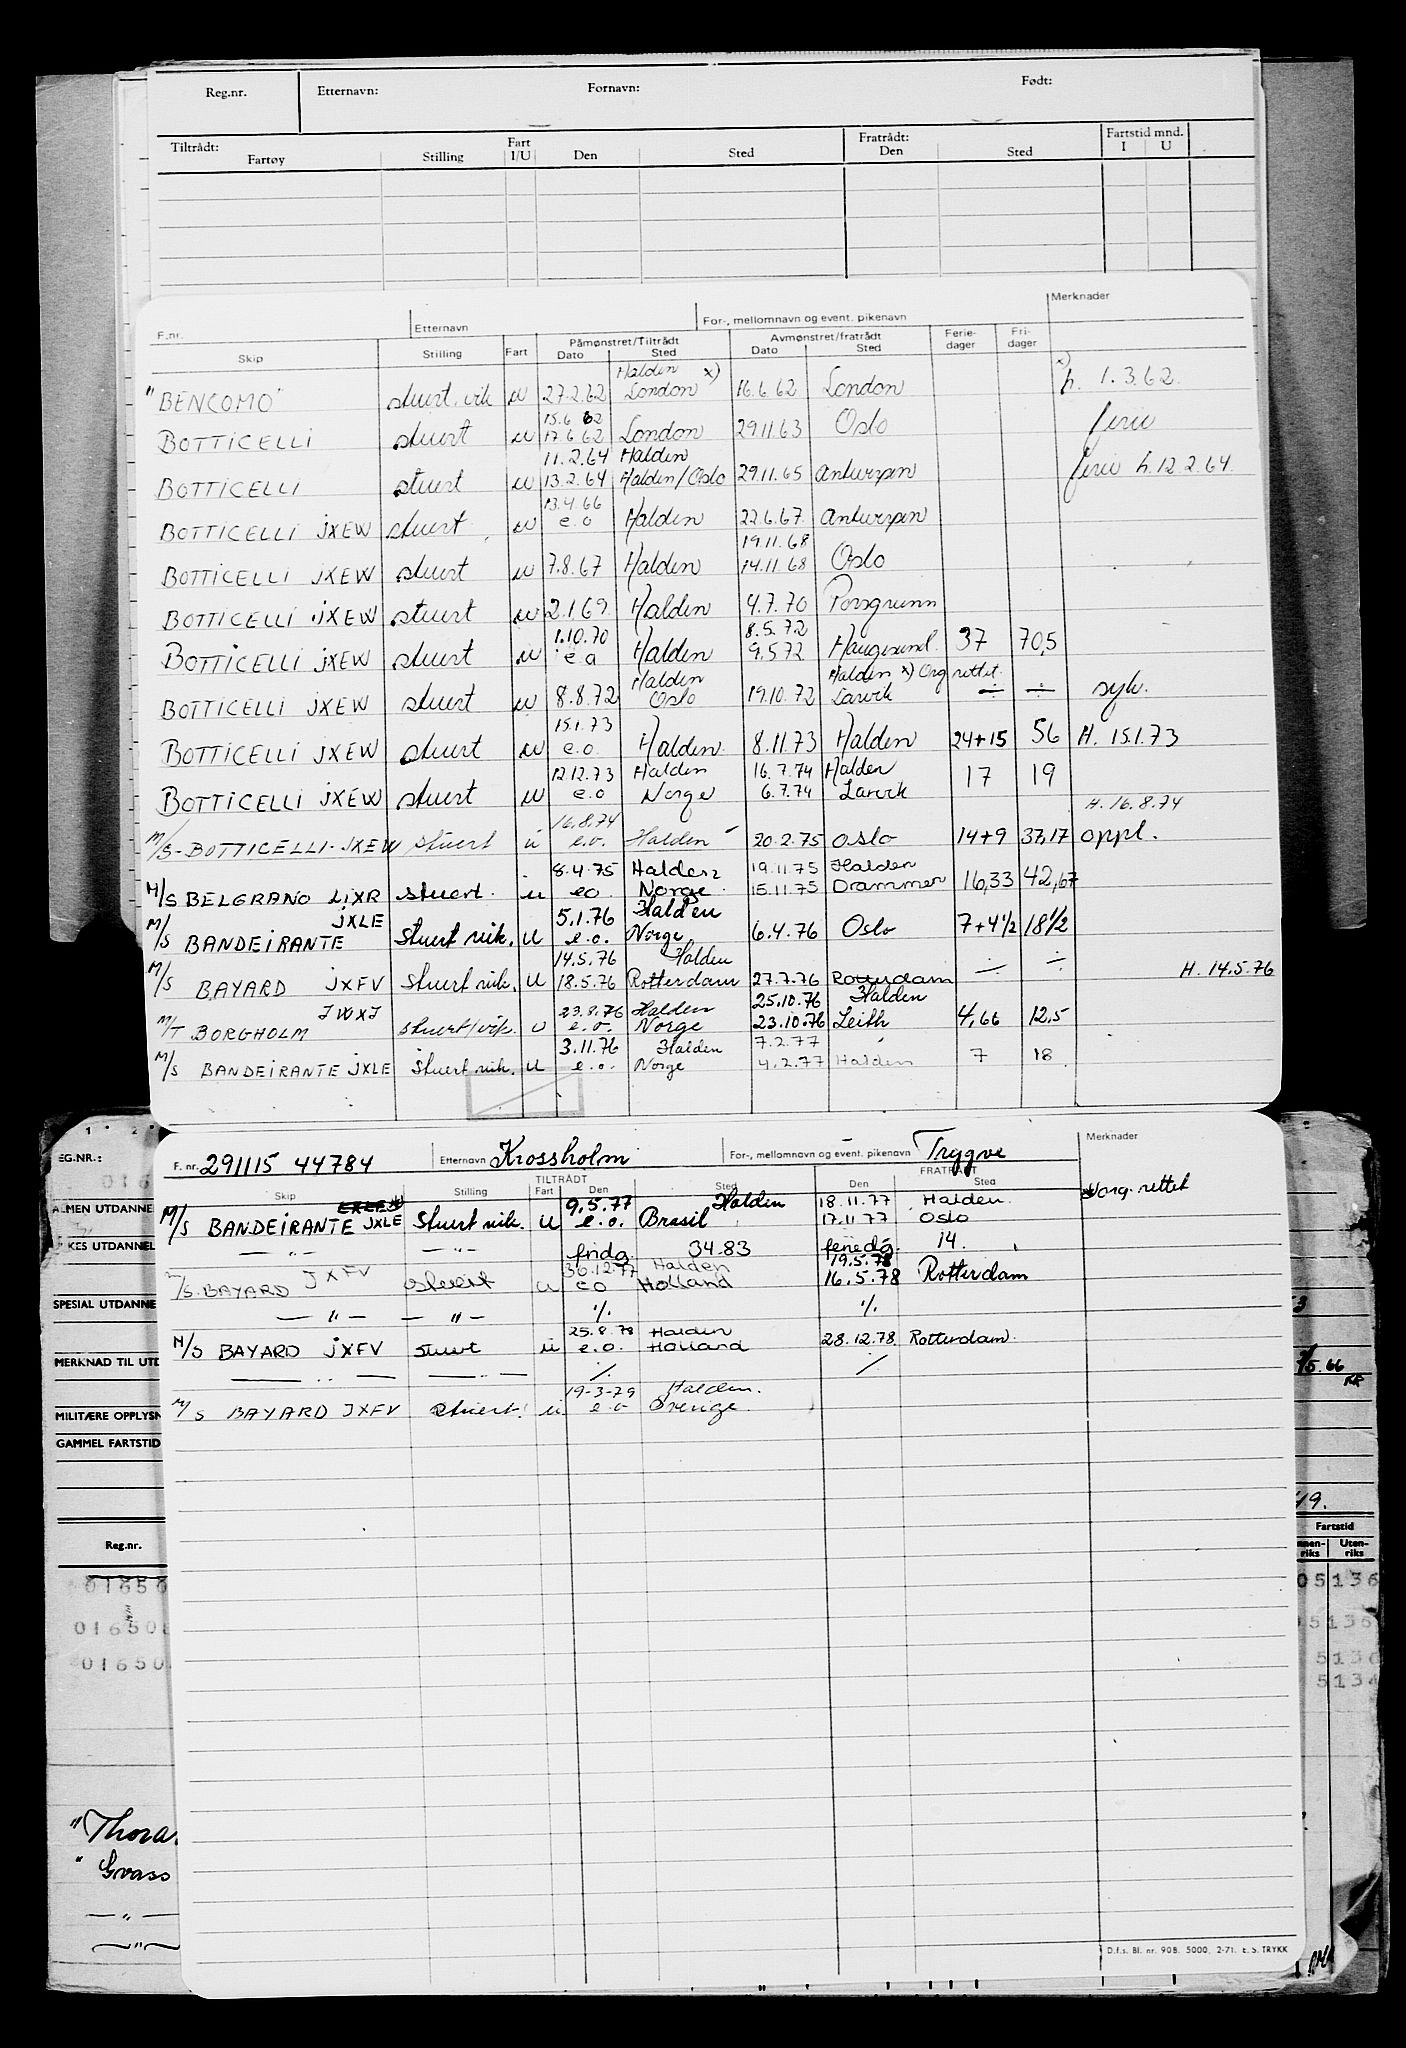 Reg.nr. Etternavn: Fornavn: Født:
Tiltrådt: Fartøy Stilling Fart I/U Den Sted Fratrådt: Den Sted Fartstid mnd. I U
F.nr. Etternavn For-, mellomnavn og event. pikenavn Merknader
Skip Stilling Fart Påmønstret/Tiltrådt Dato Sted Avmønstret/fratrådt Dato Sted Ferie-dager Fri-dager
Halden x) x)
"BENCOMO" stuert.vik u 27.2.62 London 16.6.62 London h. 1.3.62.
15.6 62
BOTTICELLI stuert u 17.6 62 London 29.11.63 Oslo ferie
11.2.64 Halden
BOTTICELLI stuert u 13.2.64 Halden/Oslo 29.11.65 Antwerpen ferie h.12.2.64.
13.4.66
BOTTICELLI JXEW stuert u e.o Halden 22.6.67 Antwerpen
19.11.68
BOTTICELLI JXEW stuert u 7.8.67 Halden 14.11 68 Oslo
BOTTICELLI JXEW stuert u 2.1.69 Halden 4.7.70 Porsgrunn
1.10.70 8.5.72
BOTTICELLI JXEW stuert u e a Halden 9.5 72 Haugesund. 37 70,5
Halden Halden x) Org rettet.
BOTTICELLI JXEW stuert u 8.8.72 Oslo 19.10.72 Larvik ÷ ÷ syk.
15.1.73
BOTTICELLI JXEW stuert u e.o. Halden. 8.11.73 Halden 24+15 56 H. 15.1.73
12.12.73 Halden 16.7.74 Halden
BOTTICELLI JXEW stuert u e.o Norge 6.7.74 Larvik 17 19 H.16.8.74
16.8.74
M/S-BOTTICELLI-JXEW stuert u e.o. Halden 20.2.75 Oslo 14+9 37,17 oppl.
8.4.75 Halden 19.11.75 Halden
M/S BELGRANO LIXR stuert. u eo Norge 15.11.75 Drammen 16,33 42,67
JXLE 5.1.76 Halden
M/S BANDEIRANTE stuert vik. u e.o. Norge 6.4.76 Oslo 7+4 1/2 18 1/2
14.5.76 Halden
M/S BAYARD JXFV stuert vik. u 18.5.76 Rotterdam 27.7.76 Rotterdam ÷ ÷ H. 14.5.76
JWXJ 23.8.76 Halden 25.10.76 Halden
M/T BORGHOLM stuert/vik. u e.o. Norge 23.10.76 Leith 4,66 12,5
3.11.76 Halden 7.2.77
M/S BANDEIRANTE JXLE stuert vik. u e.o. Norge 4.2.77 Halden 7 18
F. nr. 291115 44784 Etternavn Krossholm For-, mellomnavn og event. pikenavn Trygve Merknader
Skip Stilling TILTRÅDT Fart Den Sted FRATRÅDT Den Sted
9.5.77 Halden 18.11.77 Halden. Norg. rettet
M/S BANDEIRANTE JXLE stuert vik. u e.o. Brasil 17.11 77 Oslo
— " — — " — fridg. 34.83 feriedg. 14.
JXFV 30.12.77 Halden 19.5.78
M/S. BAYARD stuert u eo Holland 16.5.78 Rotterdam
— " — — " — ٪ ٪
25.8.78 Halden
M/S BAYARD JXFV stuert u e.o. Holland 28.12.78. Rotterdam.
— " — — " — ٪ ٪
19-3-79 Halden.
M/S BAYARD JXFV stuert. u e.o Sverige.
D.f.s. Bl. nr. 908. 5000. 2-71. E.S. TRYKK
EG.NR.:
ALMEN UTDANNE
KES UTDANNEL
SPESIAL UTDANNE
MERKNAD TIL UTD
MILITÆRE OPPLYSN
GAMMEL FARTSTID
Reg.nr.
01650
01650
01650
"Thora
" Grass
— " —
— " —
/5.66
49.
Fartstid
Innen-riks Uten-riks
05136
5136
5136
5134